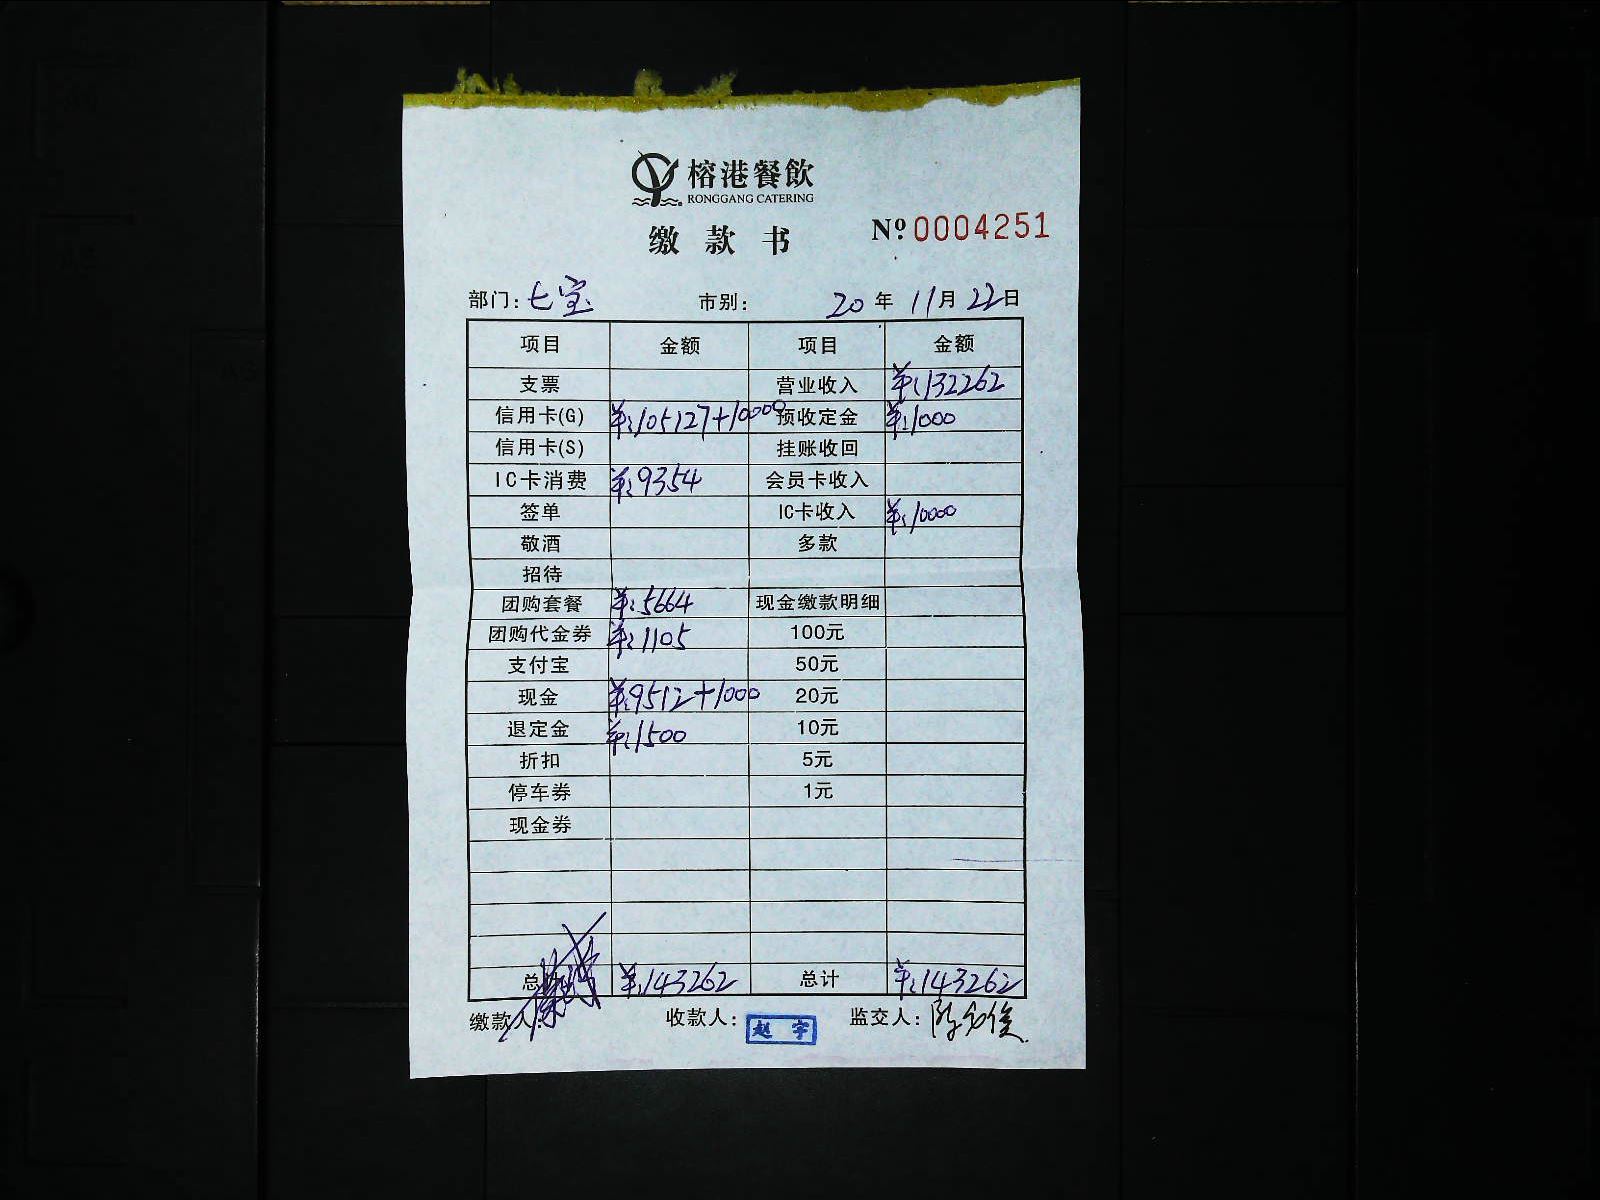 榕港餐飲
RONGGANG CATERING
缴款书 № 0004251
部门: 七宝 市别: 20年11月22日
项目 金额 项目 金额
支票 营业收入 ¥:132262
信用卡(G) ¥:105127+10000 预收定金 ¥:1000
信用卡(S) 挂账收回
IC卡消费 ¥:9354 会员卡收入
签单 IC卡收入 ¥:10000
敬酒 多款
招待
团购套餐 ¥:5664 现金缴款明细
团购代金券 ¥:1105 100元
支付宝 50元
现金 ¥:9512+1000 20元
退定金 ¥:1500 10元
折扣 5元
停车券 1元
现金券
总计 ¥:143262 总计 ¥:143262
缴款人: 收款人: 赵宇 监交人: